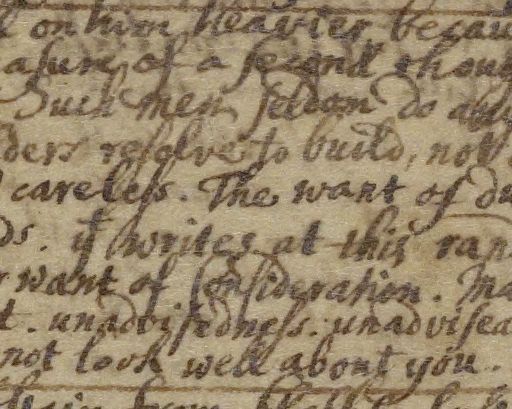 on him heavier becau
asure of a second thou
Such men seldom do
ders resolve to build, not
careless. The want of du
ds. yt writes at this ran
want of Consideration. Ma
t. unadvisedness: unadvisea
not look well about you.